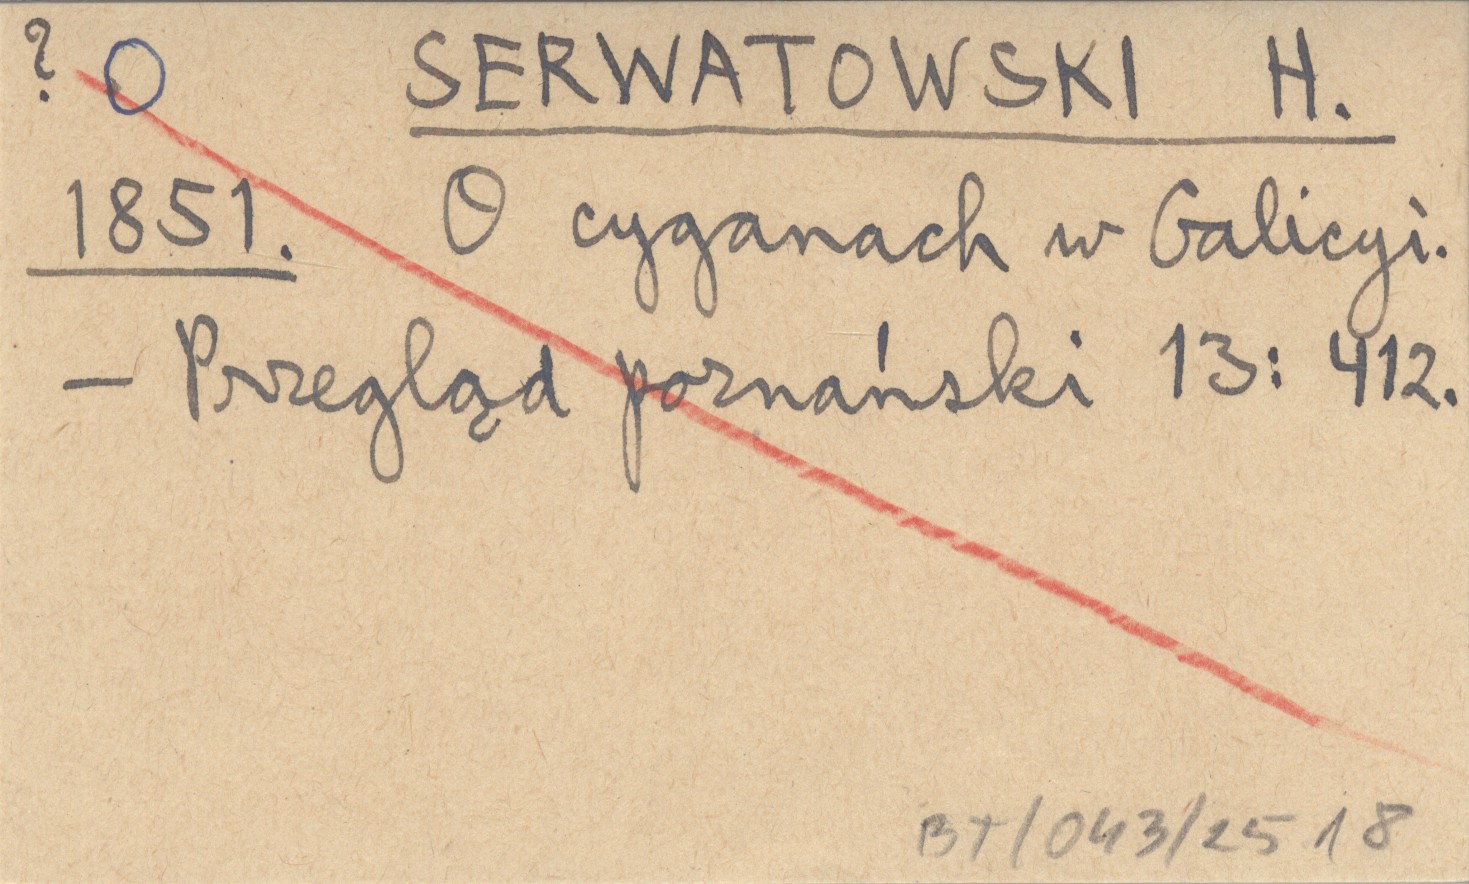 ? O SERWATOWSKI H.
1851. O cyganach w Galicyi.
— Przegląd poznański 13: 412.
BT/043/25 18